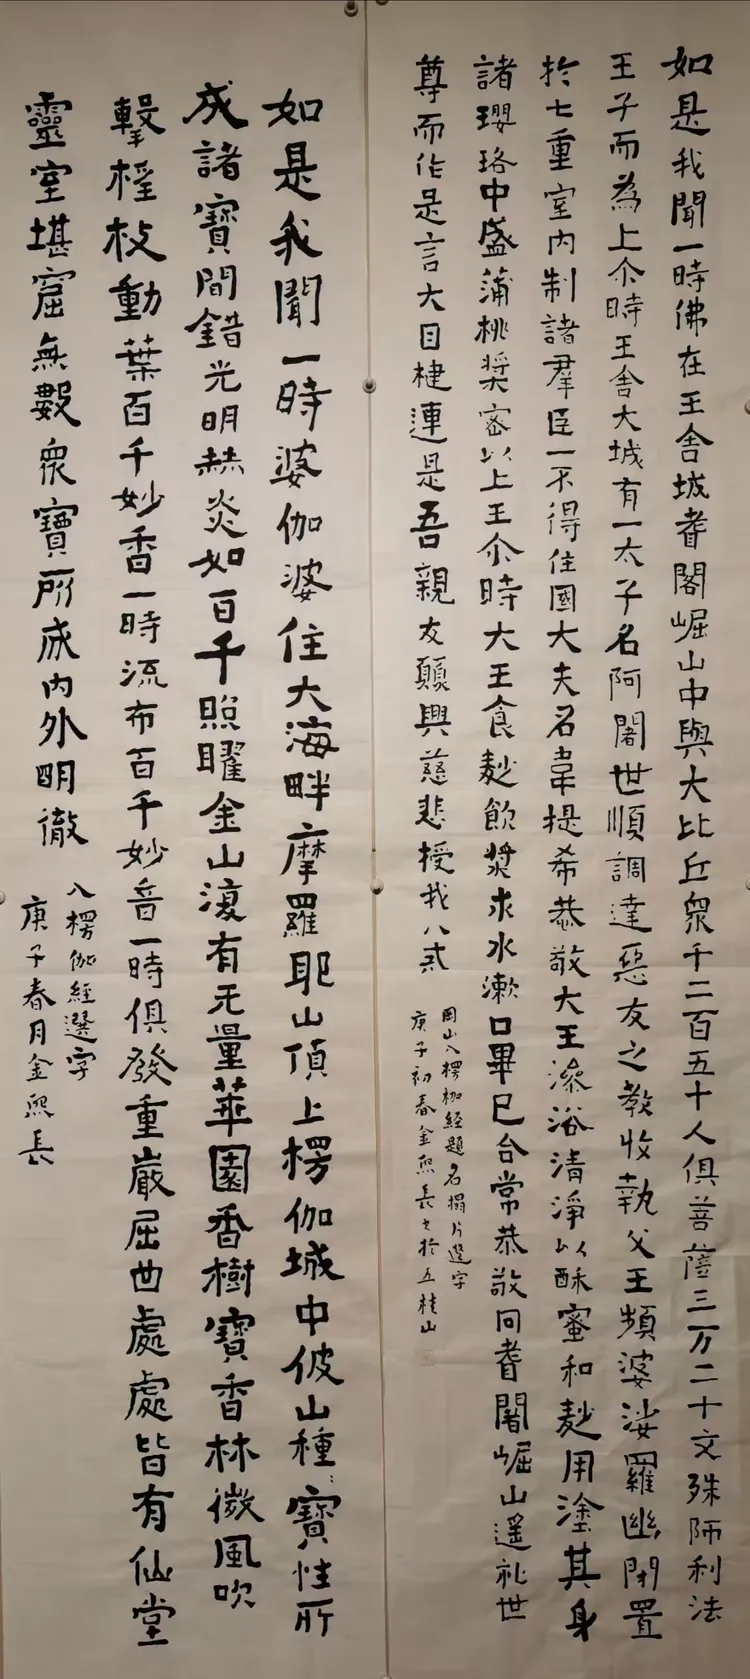 如是我聞一時佛在王舍城耆闍崛山中與大比丘衆千二百五十人俱菩薩三万二千文殊師利法
王子而為上尒時王舍大城有一太子名阿闍世順調達惡友之教收執父王頻婆娑羅幽閉置
於七重室內制諸羣臣一不得住國大夫名韋提希恭敬大王澡浴清淨以酥蜜和麨用塗其身
諸瓔珞中盛蒲桃漿密以上王尒時大王食麨飲漿求水漱口畢已合常恭敬向耆闍崛山遥礼世
尊而作是言大目揵連是吾親友願興慈悲授我八戒
岡山入楞伽經題名搨片選字
庚子初春金熙長書於五桂山
如是我聞一時婆伽婆住大海畔摩羅耶山頂上楞伽城中彼山種:寶性所
成諸寶間錯光明赫炎如百千照曜金山復有无量華園香樹寶香林微風吹
擊枝動葉百千妙香一時流布百千妙音一時俱發重巖屈曲處處皆有仙堂
靈室堪窟無數衆寶所成內外明徹
入楞伽經選字
庚子春月金熙長